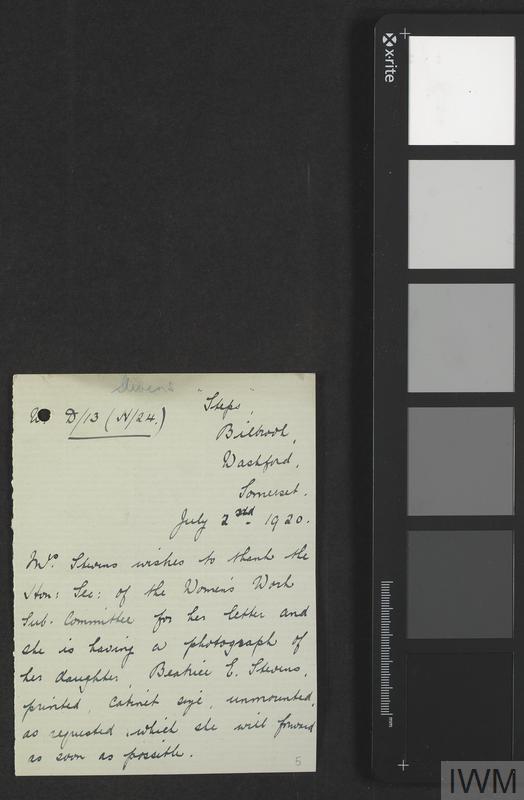 x-rite
Stevens
D/13 (N/24.)
"Steps",
Bilbrook,
Washford,
Somerset.
July 2nd. 1920.
Mrs. Stevens wishes to thank the
Hon: Sec: of the Women's Work
Sub. Committee for her letter and
she is having a photograph of
her daughter, Beatrice E. Stevens,
printed, Cabinet size, unmounted,
as requested, which she will forward
as soon as possible.
5
mm
IWM